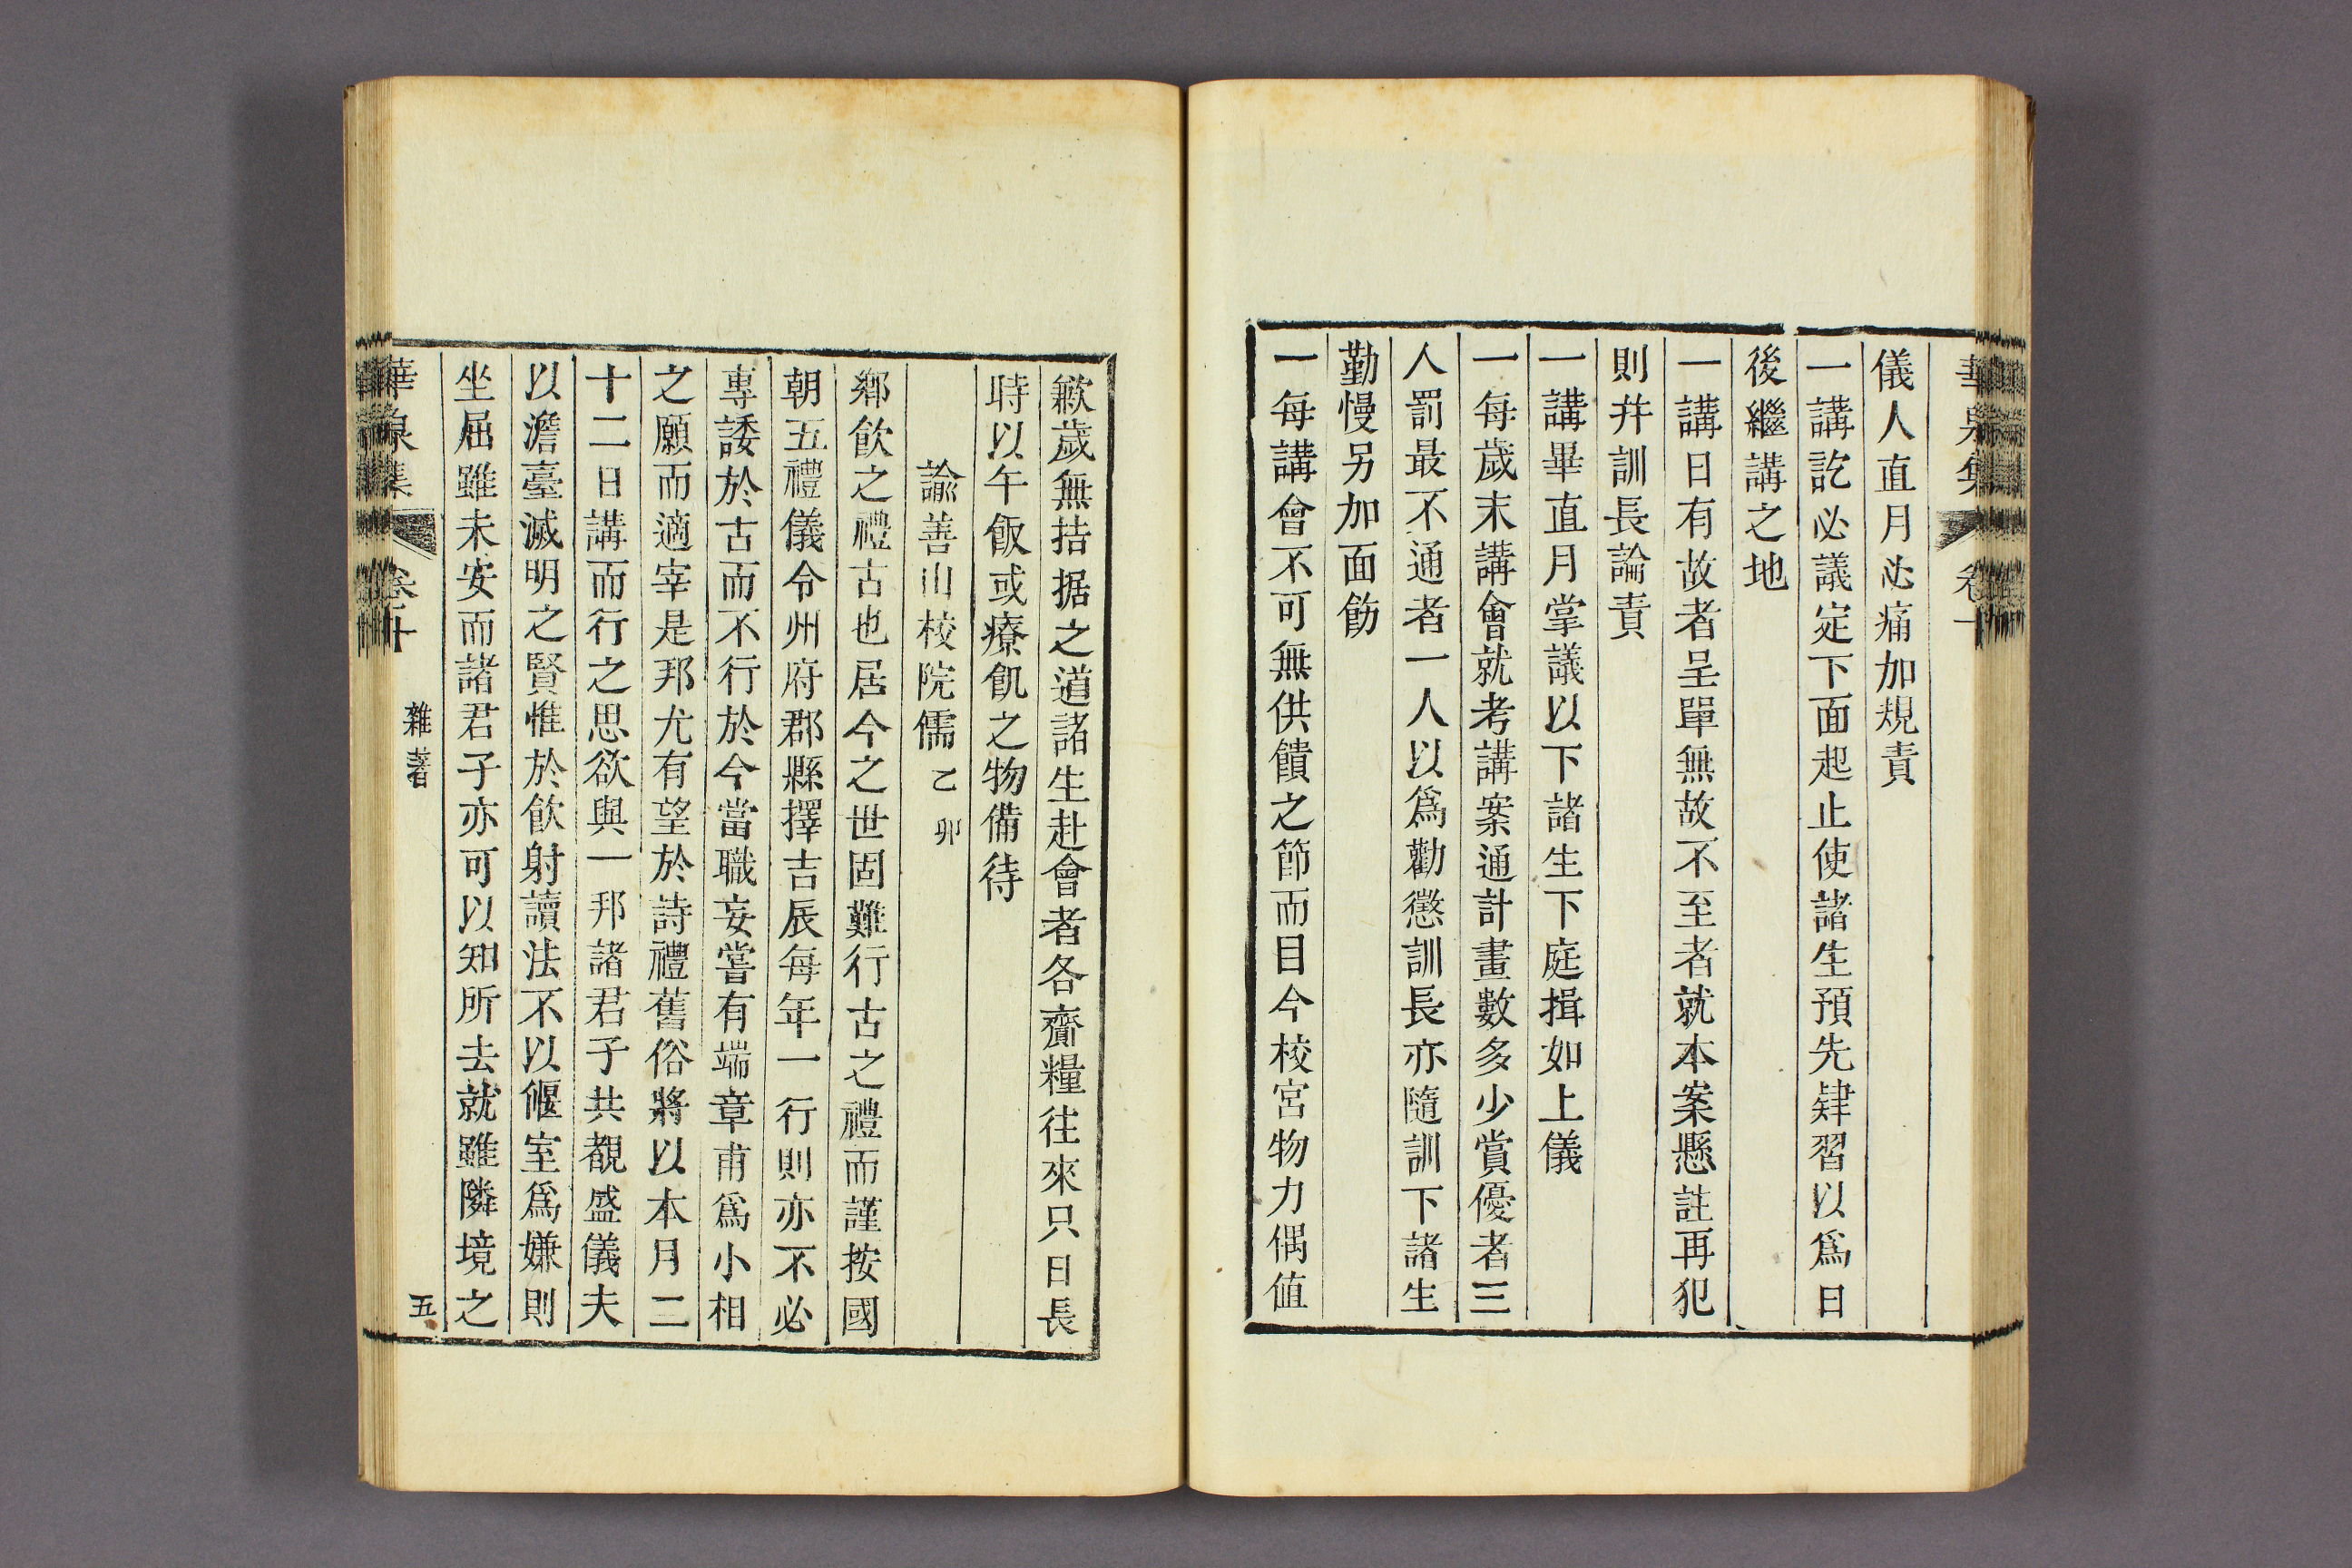 儀人直月必痛加規責
一講訖必議定下面起止使諸生預先肄習以爲日
後繼講之地
一講日有故者呈單無故不至者就本案懸註再犯
則幷訓長論責
一講畢直月掌議以下諸生下庭揖如上儀
一每歲末講會就考講案通計畫數多少賞優者三
人罰最不通者一人以爲勸懲訓長亦隨訓下諸生
勤慢另加面飭
一每講會不可無供饋之節而目今校宮物力偶値
歉歲無拮据之道諸生赴會者各齎糧往來只日長
時以午飯或療飢之物備待
諭善山校院儒乙卯
鄕飮之禮古也居今之世固難行古之禮而謹按國
朝五禮儀令州府郡縣擇吉辰每年一行則亦不必
專諉於古而不行於今當職妄嘗有端章甫爲小相
之願而適宰是邦尤有望於詩禮舊俗將以本月二
十二日講而行之思欲與一邦諸君子共覩盛儀夫
以澹臺滅明之賢惟於飮射讀法不以偃室爲嫌則
坐屈雖未安而諸君子亦可以知所去就雖隣境之
華泉集 卷十 雜著 五